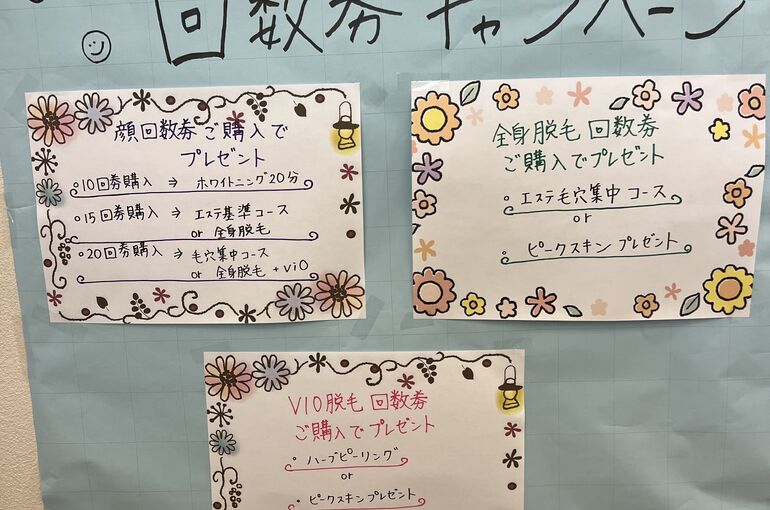 回数券キャンペーン
顔回数券ご購入で
プレゼント
○10回券購入 ⇒ ホワイトニング20分
○15回券購入 ⇒ エステ基準コース
or 全身脱毛
○20回券購入 ⇒ 毛穴集中コース
or 全身脱毛 + ViO
全身脱毛 回数券
ご購入でプレゼント
○ エステ毛穴集中コース
or
○ ピークスキンプレゼント
VIO脱毛 回数券
ご購入でプレゼント
○ ハーブピーリング
or
○ ピークスキンプレゼント